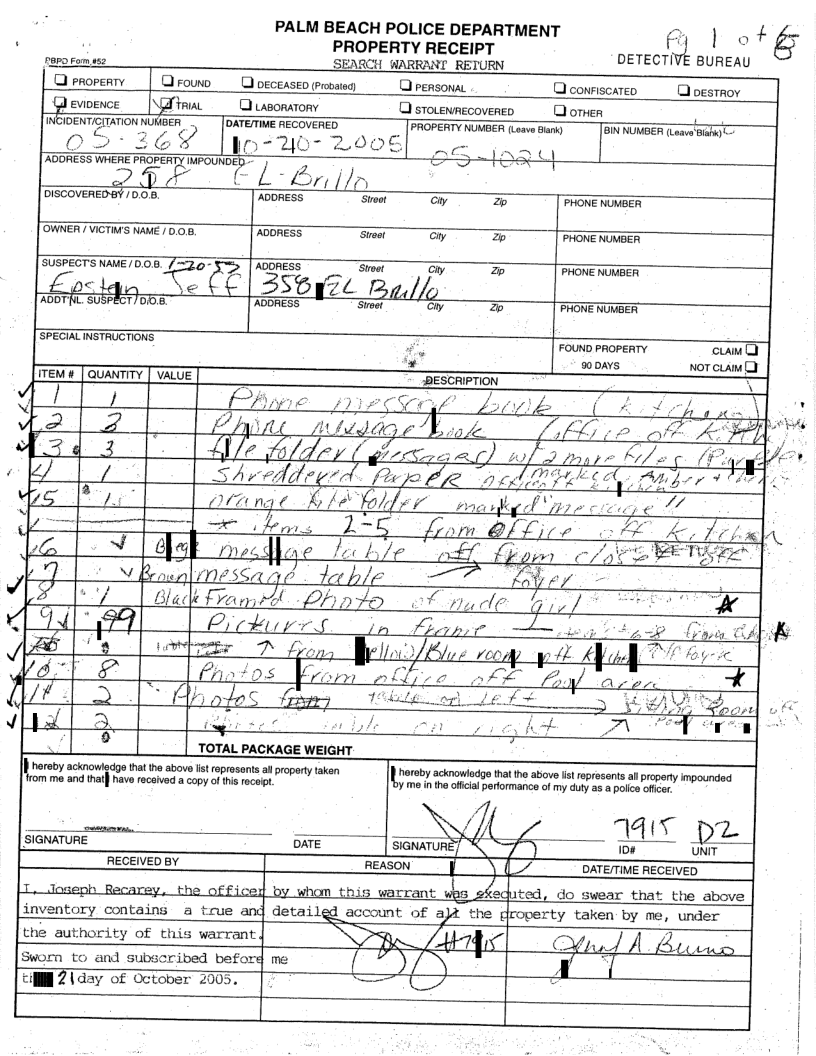 PALM BEACH POLICE DEPARTMENT
PROPERTY RECEIPT
SEARCH WARRANT RETURN
Pg 1 of 6
PBPD Form #52
DETECTIVE BUREAU
PROPERTY FOUND DECEASED (Probated) PERSONAL CONFISCATED DESTROY
EVIDENCE TRIAL LABORATORY STOLEN/RECOVERED OTHER
INCIDENT/CITATION NUMBER DATE/TIME RECOVERED PROPERTY NUMBER (Leave Blank) BIN NUMBER (Leave Blank)
05-368 10-20-2005 05-1024
ADDRESS WHERE PROPERTY IMPOUNDED
EL-Brillo
DISCOVERED BY / D.O.B. ADDRESS Street City Zip PHONE NUMBER
OWNER / VICTIM'S NAME / D.O.B. ADDRESS Street City Zip PHONE NUMBER
SUSPECT'S NAME / D.O.B. 1-20-53 ADDRESS Street City Zip PHONE NUMBER
Epstein Jeff 358 EL Brillo
ADDT'NL. SUSPECT / D.O.B. ADDRESS Street City Zip PHONE NUMBER
SPECIAL INSTRUCTIONS FOUND PROPERTY CLAIM
90 DAYS NOT CLAIM
ITEM # QUANTITY VALUE DESCRIPTION
1 1 Phone message book (kitchen)
2 Phone message book (office off Kitch
3 3 file folder (messages) w/ 2 more files (Purple
4 1 Shreddered Paper marked Amber
5 1 orange file folder marked "message"
* items 2-5 from office off kitchen
6 Beige message table off from closet off
7 Brown message table foyer
8 1 Black Framed Photo of nude girl
9 Pickures in frame
↑ from Yellow/Blue room off Kitchen
10 8 Photos from office off Pool area
11 2 Photos table on left Sitting Room off
12 2 table on right ↗ Pool area
TOTAL PACKAGE WEIGHT
hereby acknowledge that the above list represents all property taken
from me and that have received a copy of this receipt.
hereby acknowledge that the above list represents all property impounded
by me in the official performance of my duty as a police officer.
7915 D2
SIGNATURE DATE SIGNATURE ID# UNIT
RECEIVED BY REASON DATE/TIME RECEIVED
I, Joseph Recarey, the officer by whom this warrant was executed, do swear that the above
inventory contains a true and detailed account of all the property taken by me, under
the authority of this warrant. #7915
Sworn to and subscribed before me
21 day of October 2005.